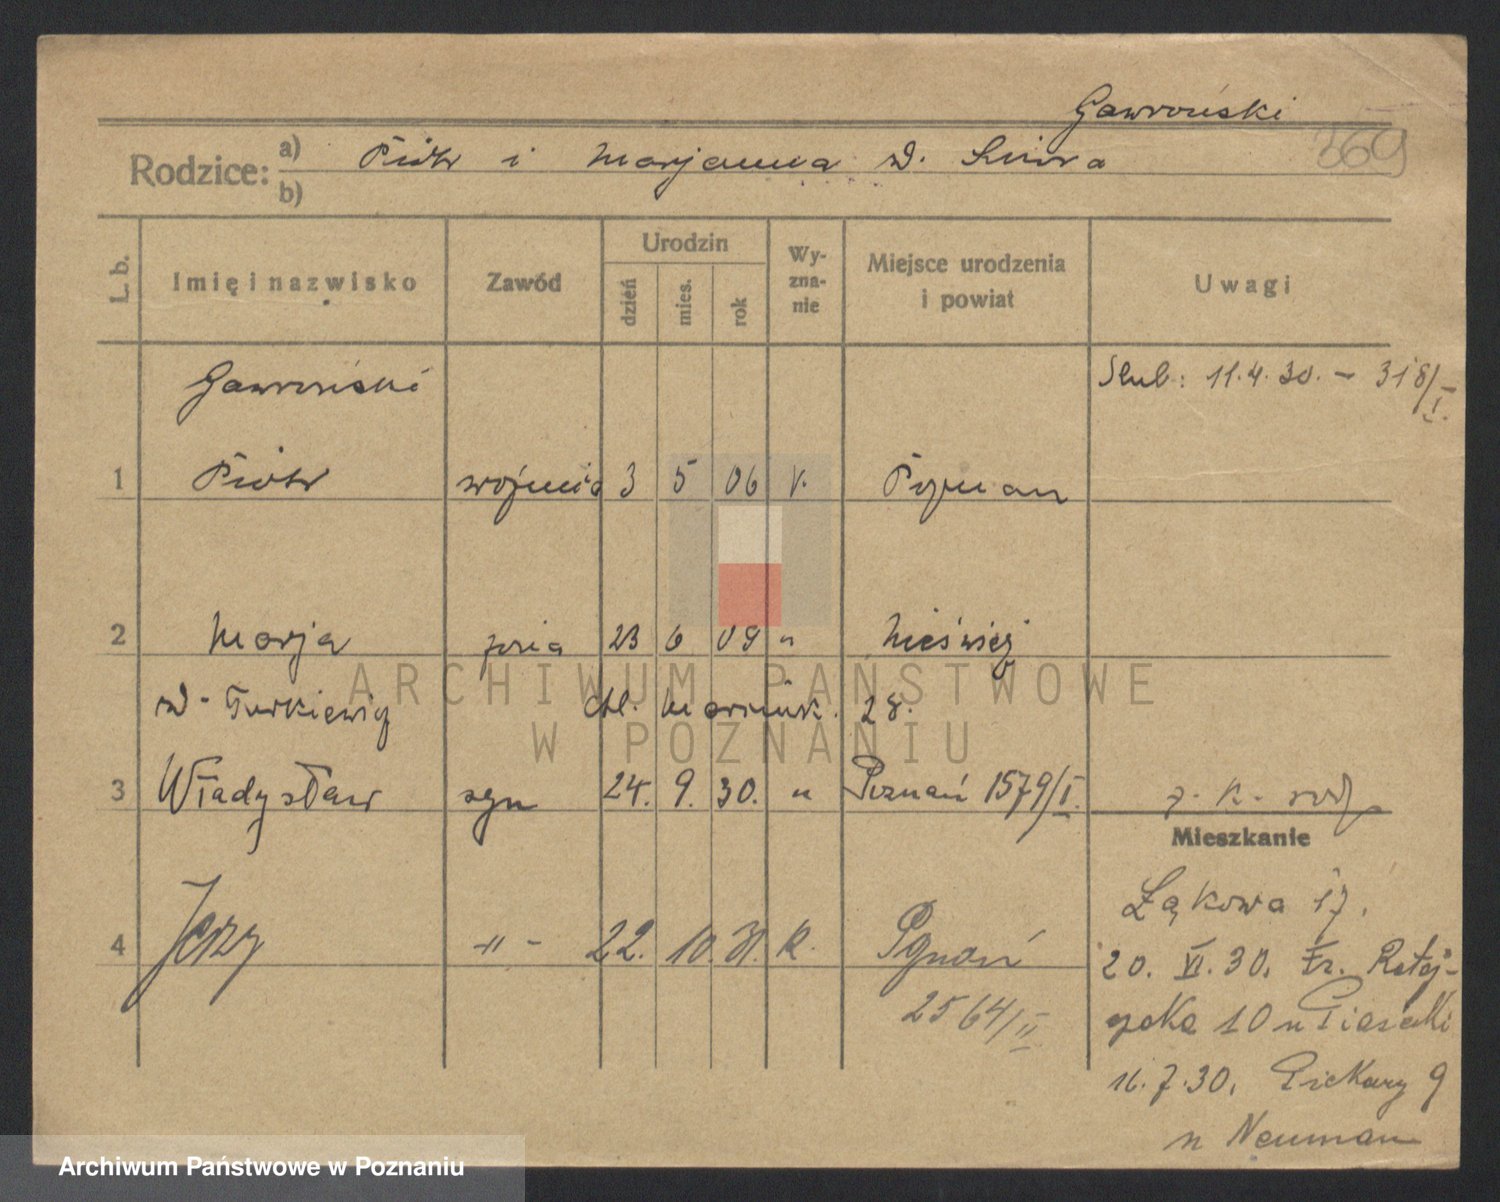 Gawroński
369
Rodzice: a) Piotr i Marjanna d.
b)
L. b.
Imię i nazwisko
Zawód
Urodzin
dzień mies. rok
Wy-
zna-
nie
Miejsce urodzenia
i powiat
Uwagi
Gawroński
Ślub: 11.4.30. – 318/I.
1 Piotr woźnica 3 5 06 Poznań
2 Marja żona 23 6 09 "
d. Turkiewicz 28.
3 Władysław syn 24. 9. 30. " Poznań 1579/I.
Mieszkanie
Łąkowa 17.
4 Jerzy -"- 22. 10. 31. k. Poznań
2564/II
20. VI. 30. Fr. Rataj-
czaka 10 u Piasecki
16.7.30. Piekary 9
u Neuman
ARCHIWUM PAŃSTWOWE
W POZNANIU
Archiwum Państwowe w Poznaniu